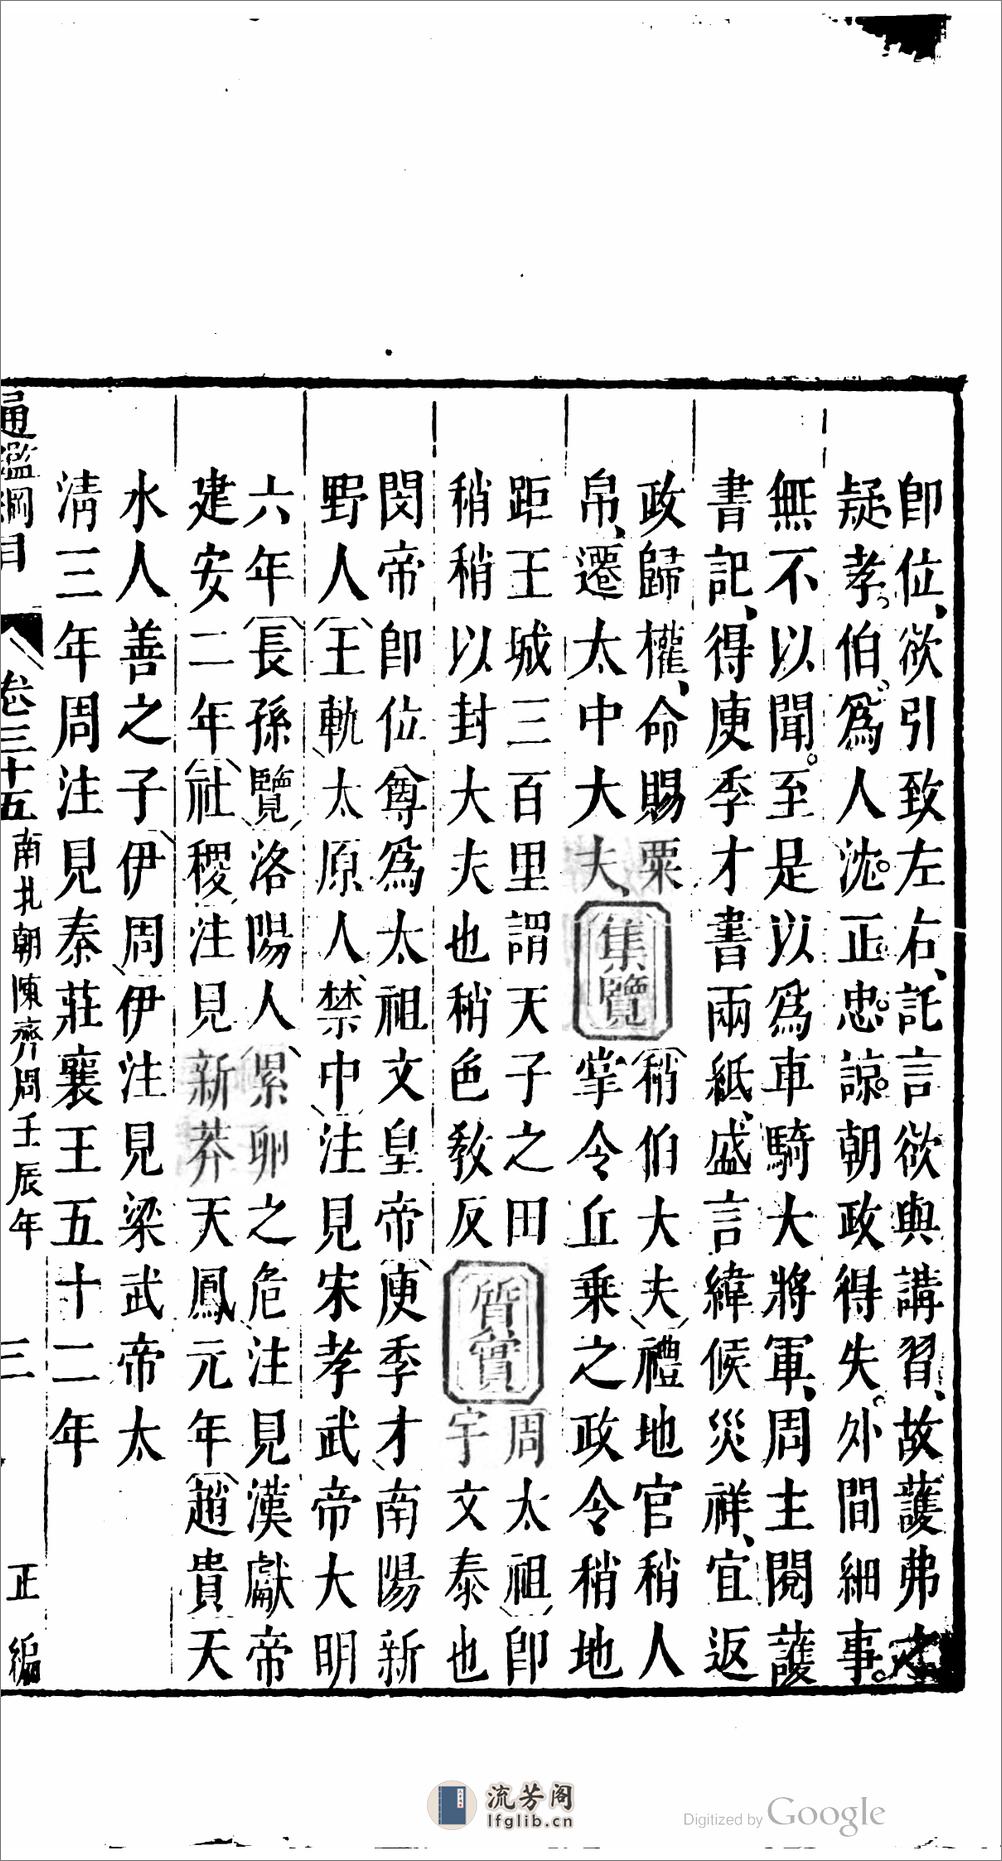 即位、欲引致左右、託言欲與講習、故護弗之
疑。孝伯、爲人沈正忠諒、朝政得失、外間細事。
無不以聞。至是以爲車騎大將軍、周主閱護
書記、得庾季才書兩紙、盛言緯候災祥、宜返
政歸權、命賜粟
帛、遷太中大夫、
集覽
稍伯大夫禮地官稍人
掌令丘乘之政令稍地
距王城三百里謂天子之田
稍稍以封大夫也稍色敎反
質實
周太祖卽
宇文泰也
閔帝卽位尊爲太祖文皇帝庾季才南陽新
野人王軌太原人禁中注見宋孝武帝大明
六年長孫覽洛陽人累卵之危注見漢獻帝
建安二年社稷注見新莽天鳳元年趙貴天
水人善之子伊周伊注見梁武帝太
清三年周注見秦莊襄王五十二年
通鑑綱目 卷三十五 南北朝陳齊周壬辰年 三 正編
流芳阁
lfglib.cn
Digitized by Google